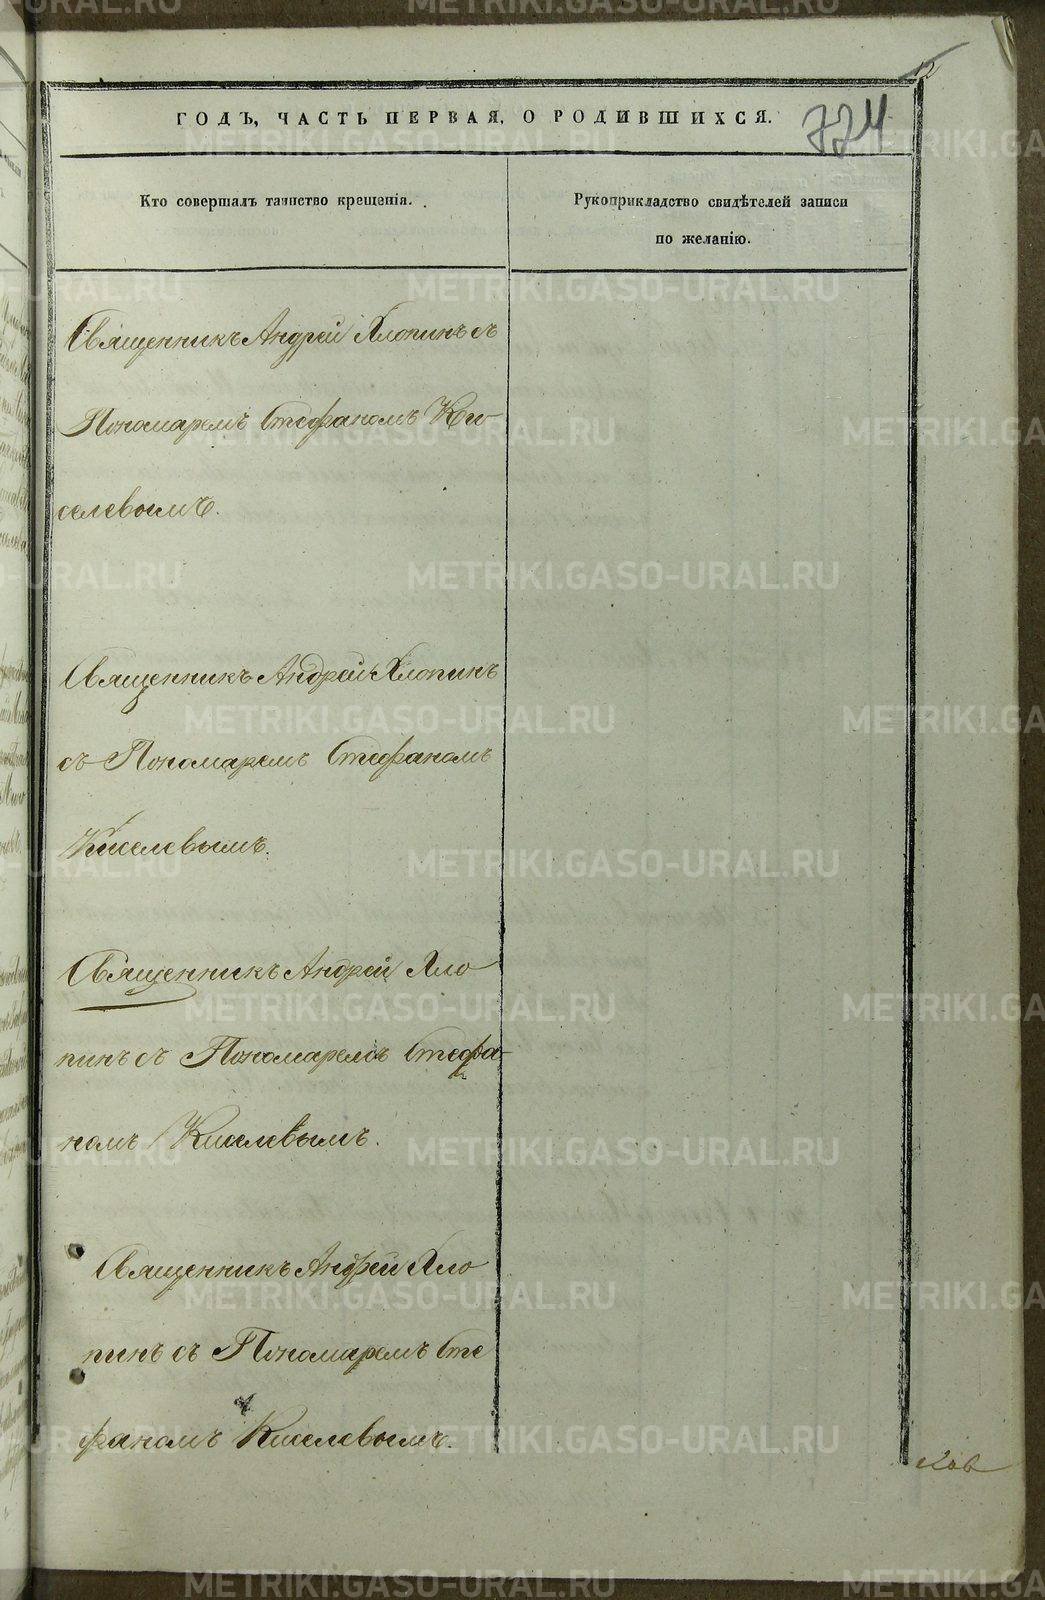 12
ГОДЪ, ЧАСТЬ ПЕРВАЯ, О РОДИВШИХСЯ.
774
Кто совершалъ таинство крещенія.
Рукоприкладство свидѣтелей записи
по желанію.
Священникъ Андрей Хлопинъ съ
Пономаремъ Стефаномъ Ки-
селевымъ.
Священникъ Андрей Хлопинъ
съ Пономаремъ Стефаномъ
Киселевымъ.
Священникъ Андрей Хло
пинъ съ Пономаремъ Стефа-
номъ Киселевымъ.
Священникъ Андрей Хло
пинъ съ Пономаремъ Сте
фаномъ Киселевымъ.
METRIKI.GASO-URAL.RU